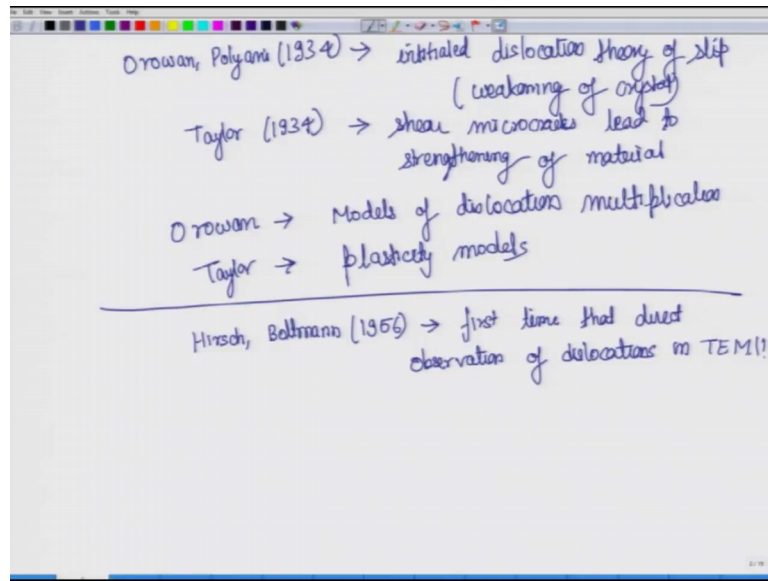 Orowan, Polyani (1934) → initialed dislocation theory of slip
(weakening of crystal)
Taylor (1934) → shear microcracks lead to
strengthening of material
Orowan → Models of dislocation multiplication
Taylor → plasticity models
Hirsch, Boltmann (1956) → first time that direct
observation of dislocations in TEM!!